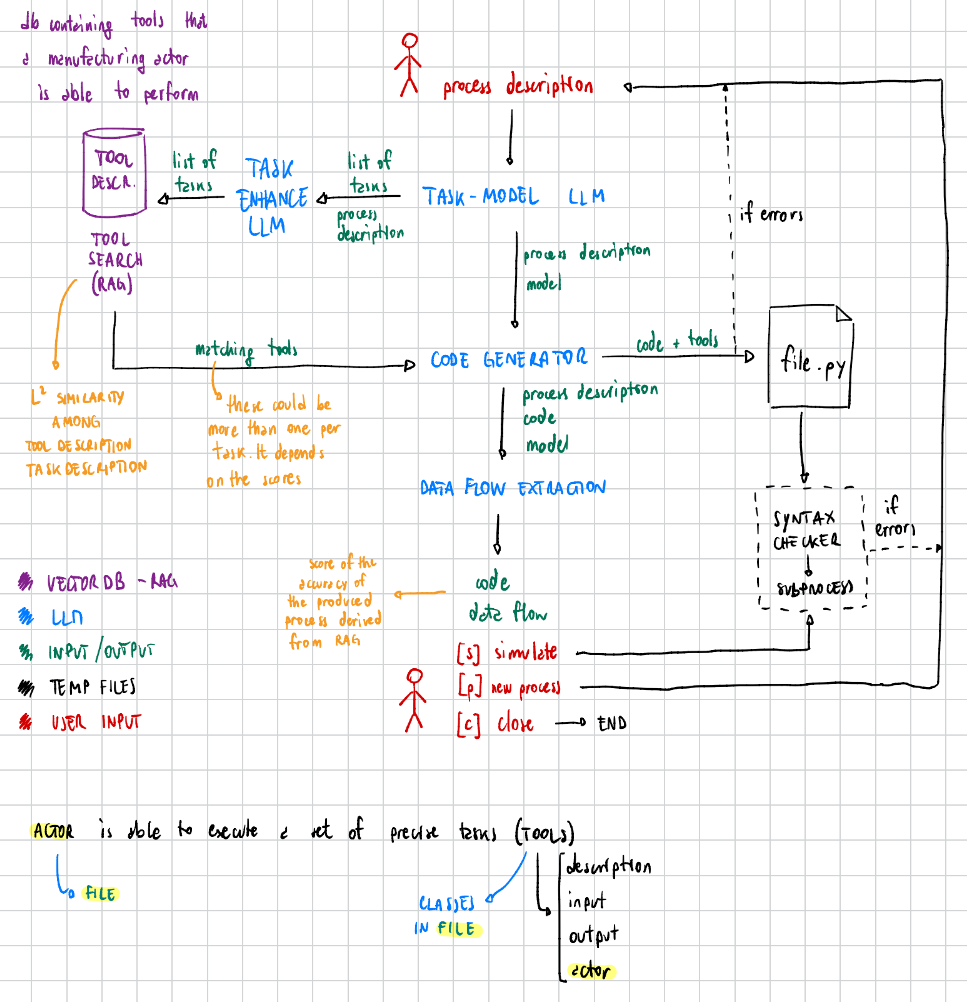 db containing tools that
a manufacturing actor
is able to perform
process description
TOOL
DESCR.
list of
tasks
TASK
ENHANCE
LLM
list of
tasks
process
description
TASK-MODEL LLM
if errors
TOOL
SEARCH
(RAG)
process description
model
matching tools
CODE GENERATOR
code + tools
file.py
L² SIMILARITY
AMONG
TOOL DESCRIPTION
TASK DESCRIPTION
these could be
more than one per
task. It depends
on the scores
process description
code
model
DATA FLOW EXTRACTION
SYNTAX
CHECKER
SUBPROCESS
if
errors
score of the
accuracy of
the produced
process derived
from RAG
code
data flow
[s] simulate
[p] new process
[c] close
END
VECTOR DB - RAG
LLM
INPUT/OUTPUT
TEMP FILES
USER INPUT
ACTOR is able to execute a set of precise tasks (TOOLS)
FILE
CLASSES
IN FILE
description
input
output
actor